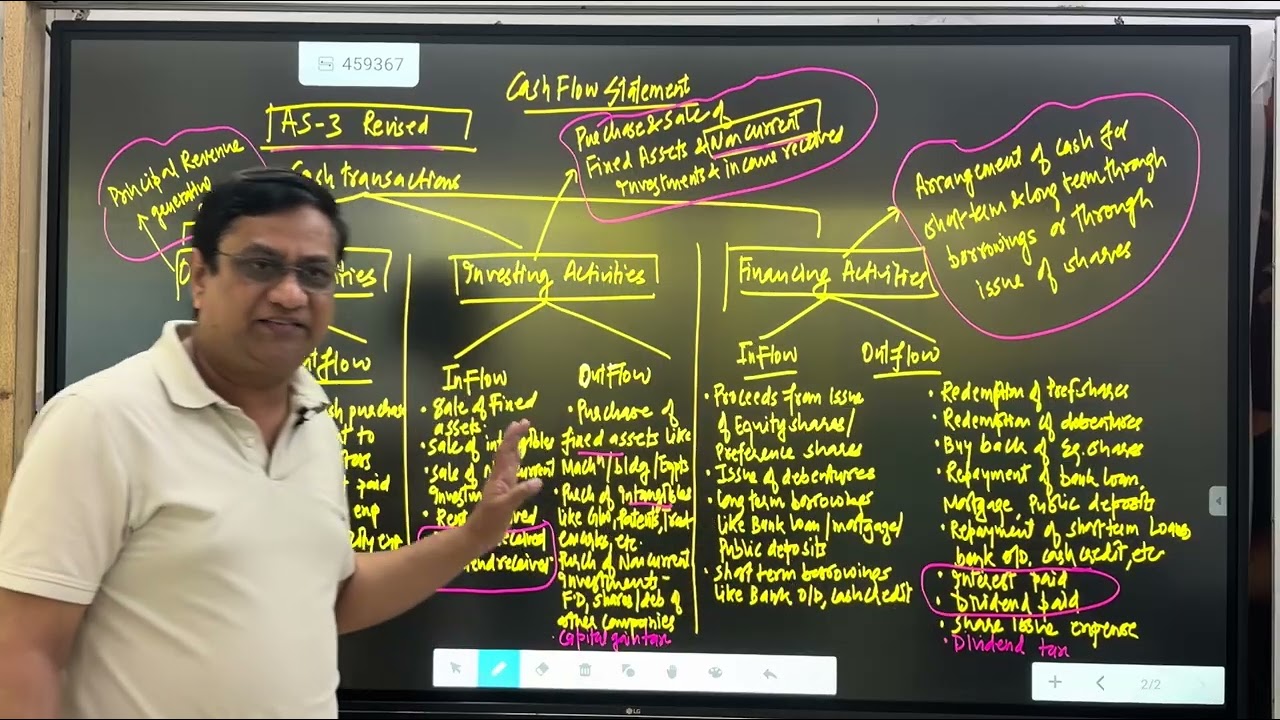 459367
Cash Flow Statement
AS-3 Revised
Cash transactions
Principal Revenue
generating
Purchase & Sale of
Fixed Assets & Non current
Investments & income received
Arrangement of cash for
short term & long term through
borrowings or through
issue of shares
Investing Activities
Financing Activities
InFlow
OutFlow
InFlow
OutFlow
• Sale of Fixed
assets
• Sale of
• Sale of
received
received
• Purchase of
fixed assets like
Mach^n/bldg/Eqpts
• Purch of Intangibles
like G/w, Patents,
etc.
Purch of Noncurrent
Investments-
F.D, shares/deb of
other companies
• Capital gain tax
• Proceeds from issue
of Equity shares/
Preference shares
• Issue of debentures
• Long term borrowings
like Bank loan/mortgage/
Public deposits
• Short term borrowings
like Bank O/D, cash credit
• Redemption of Pref shares
• Redemption of debentures
• Buy back of Eq. shares
• Repayment of bank loan,
Mortgage, Public deposits
• Repayment of short term loans
bank o/D, cash credit, etc
• Interest paid
• Dividend paid
• Share issue expense
• Dividend tax
2/2
LG